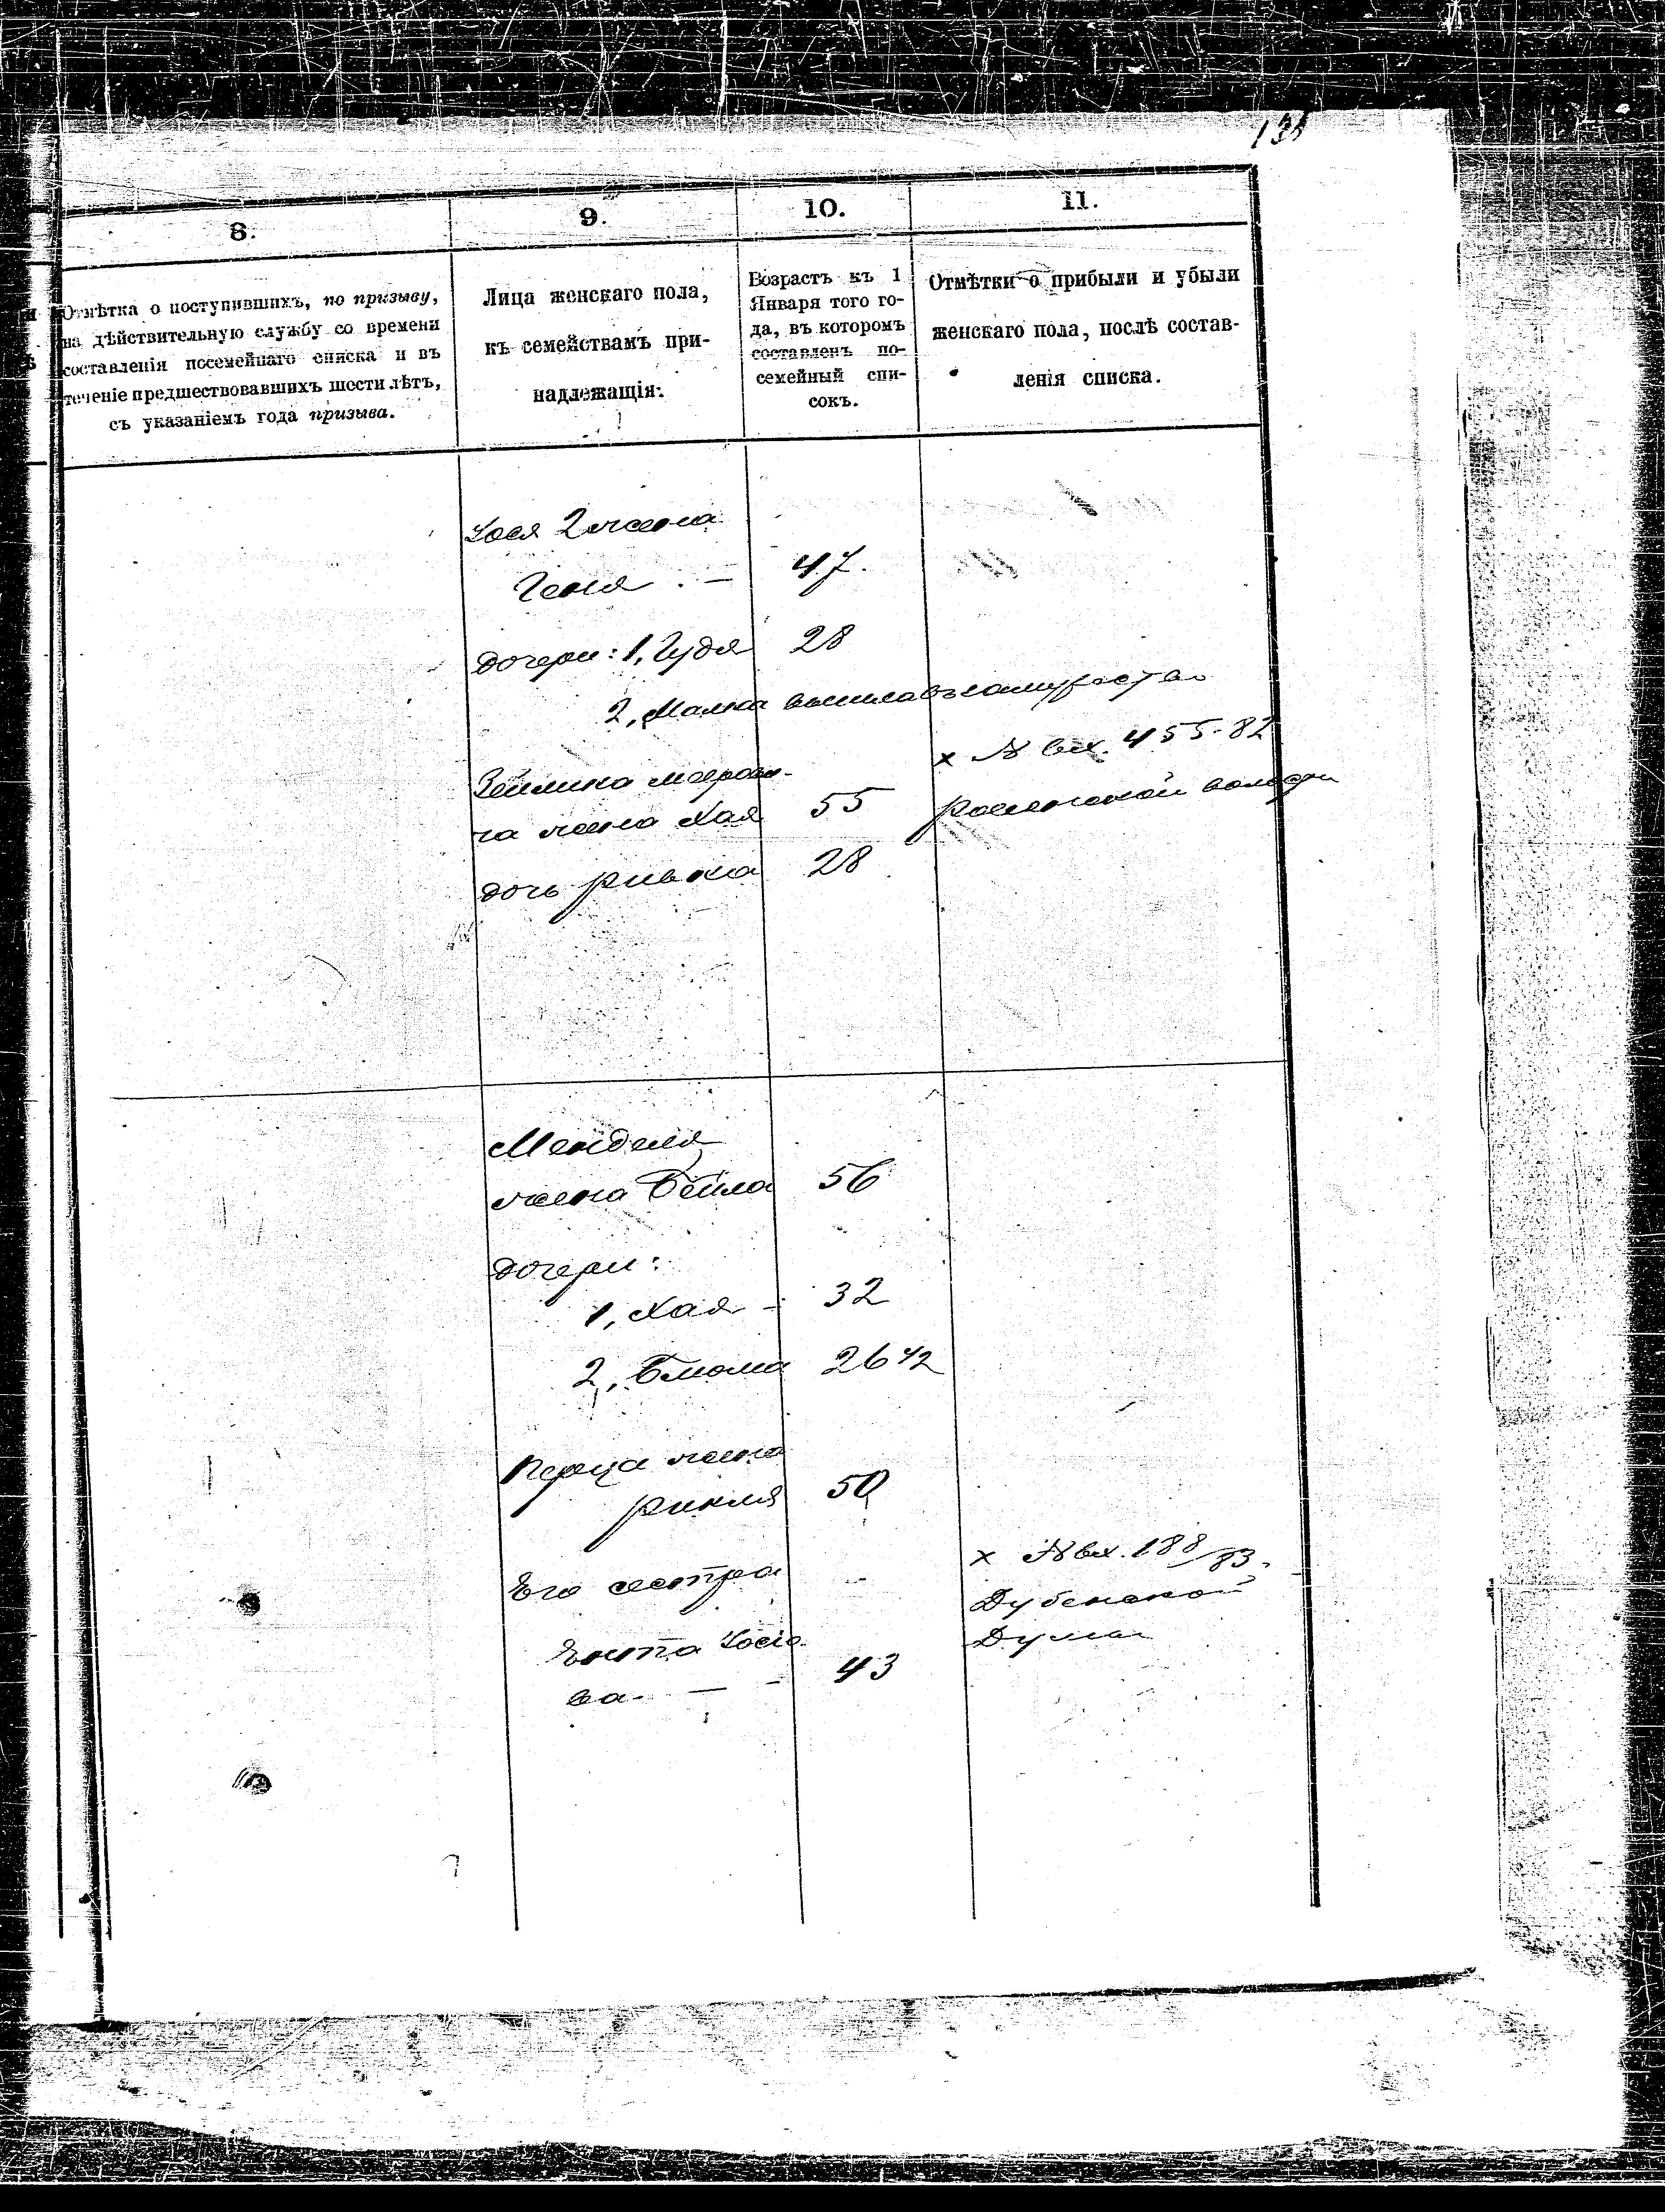 8.
9.
10.
11.
Отмѣтка о поступившихъ, по призыву,
на дѣйствительную службу со времени
составленія посемейнаго списка и въ
теченіе предшествовавшихъ шести лѣтъ,
съ указаніемъ года призыва.
Лица женскаго пола,
къ семействамъ при-
надлежащія:
Возрастъ къ 1
Января того го-
да, въ которомъ
составленъ по-
семейный спи-
сокъ.
Отмѣтки о прибыли и убыли
женскаго пола, послѣ состав-
ленія списка.
2 жена
Геня — 47.
дочери: 1, Гудя 28
2, Малка вышла въ замужество
x № вх. 455-82
Зейлика
жена Хая 55 волости
дочь Ривка 28
Менделя
жена Бейла 56
дочери:
1, Хая - 32
2, Блюма 26 1/2
Перца жена
Рикля 50
x № вх. 188/83.
Его сестра
Дубенской
Ента Iосiо-
Думы
ва — - 43